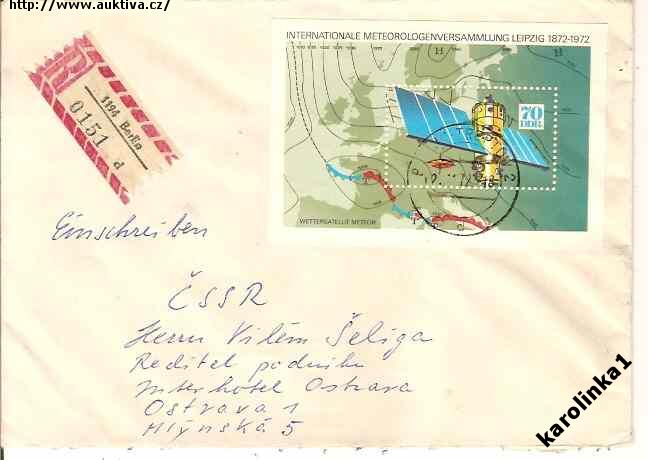 http://www.auktiva.cz/
INTERNATIONALE METEOROLOGENVERSAMMLUNG LEIPZIG 1872-1972
H
H
70
DDR
WETTERSATELLIT METEOR
R
1194 Berlin
0151 d
Einschreiben
ČSSR
Herrn Vilém Šeliga
Reditel podniku
Interhotel Ostrava
Ostrava 1
Mlýnská 5
karolinka1